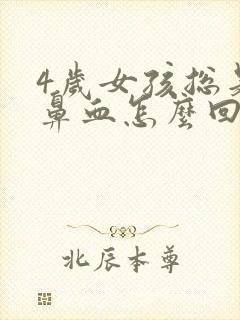 4歲女孩総是
鼻血怎麼回
北辰本尊